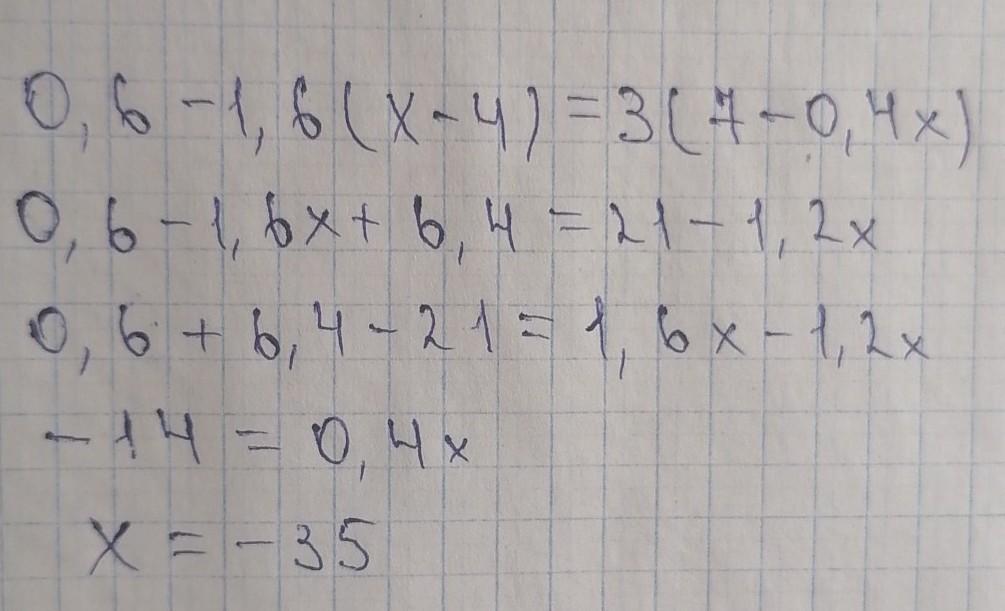 0,6-1,6(x-4)=3(7-0,4x)
0,6-1,6x+6,4=21-1,2x
0,6+6,4-21=1,6x-1,2x
-14=0,4x
x=-35